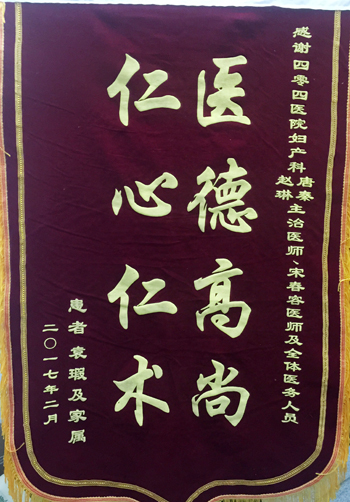 感谢四零四医院妇产科唐秦赵琳主治医师、宋春容医师及全体医务人员
医德高尚
仁心仁术
患者袁瑕及家属
二〇一七年二月